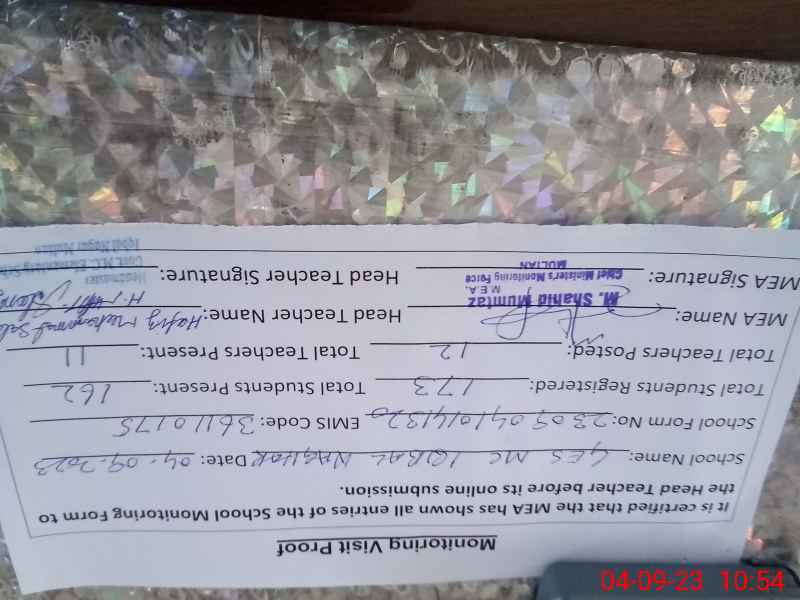 Monitoring Visit Proof
It is certified that the MEA has shown all entries of the School Monitoring Form to
the Head Teacher before its online submission.
School Name: GES MC IQBAL NAGHAR Date: 04-09-2023
School Form No: EMIS Code: 36110175
Total Students Registered: 173 Total Students Present: 162
Total Teachers Posted: 12 Total Teachers Present: 11
MEA Name: M. Shahid Mumtaz Head Teacher Name: Hafiz Muhammad
M.E.A.
MEA Signature: Chief Minister's Monitoring Force Head Teacher Signature: Headmaster
MULTAN
Govt. M.C. Elementary
Iqbal Nagar Multan
04-09-23 10:54